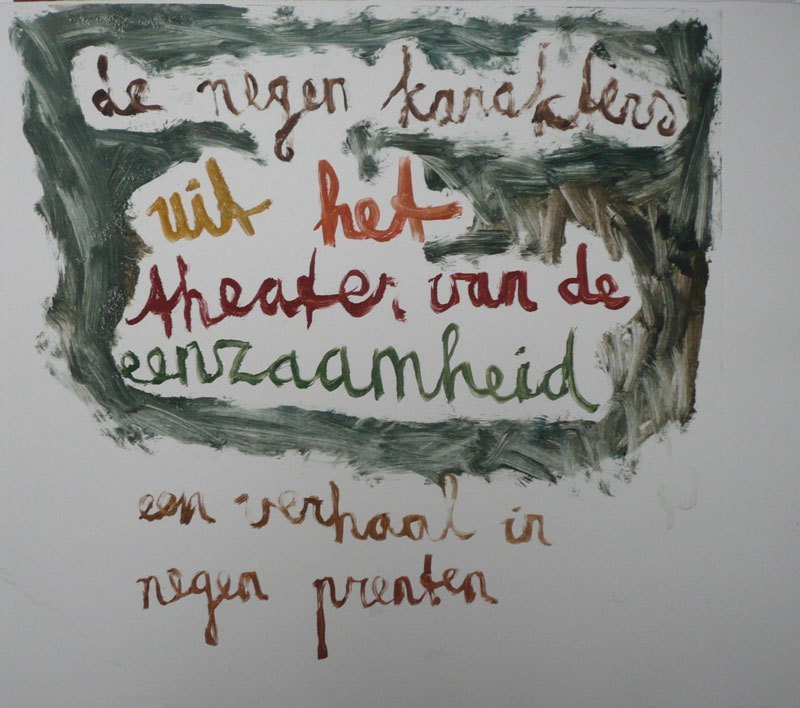 de negen karakters
uit het
theater van de
eenzaamheid
een verhaal in
negen prenten